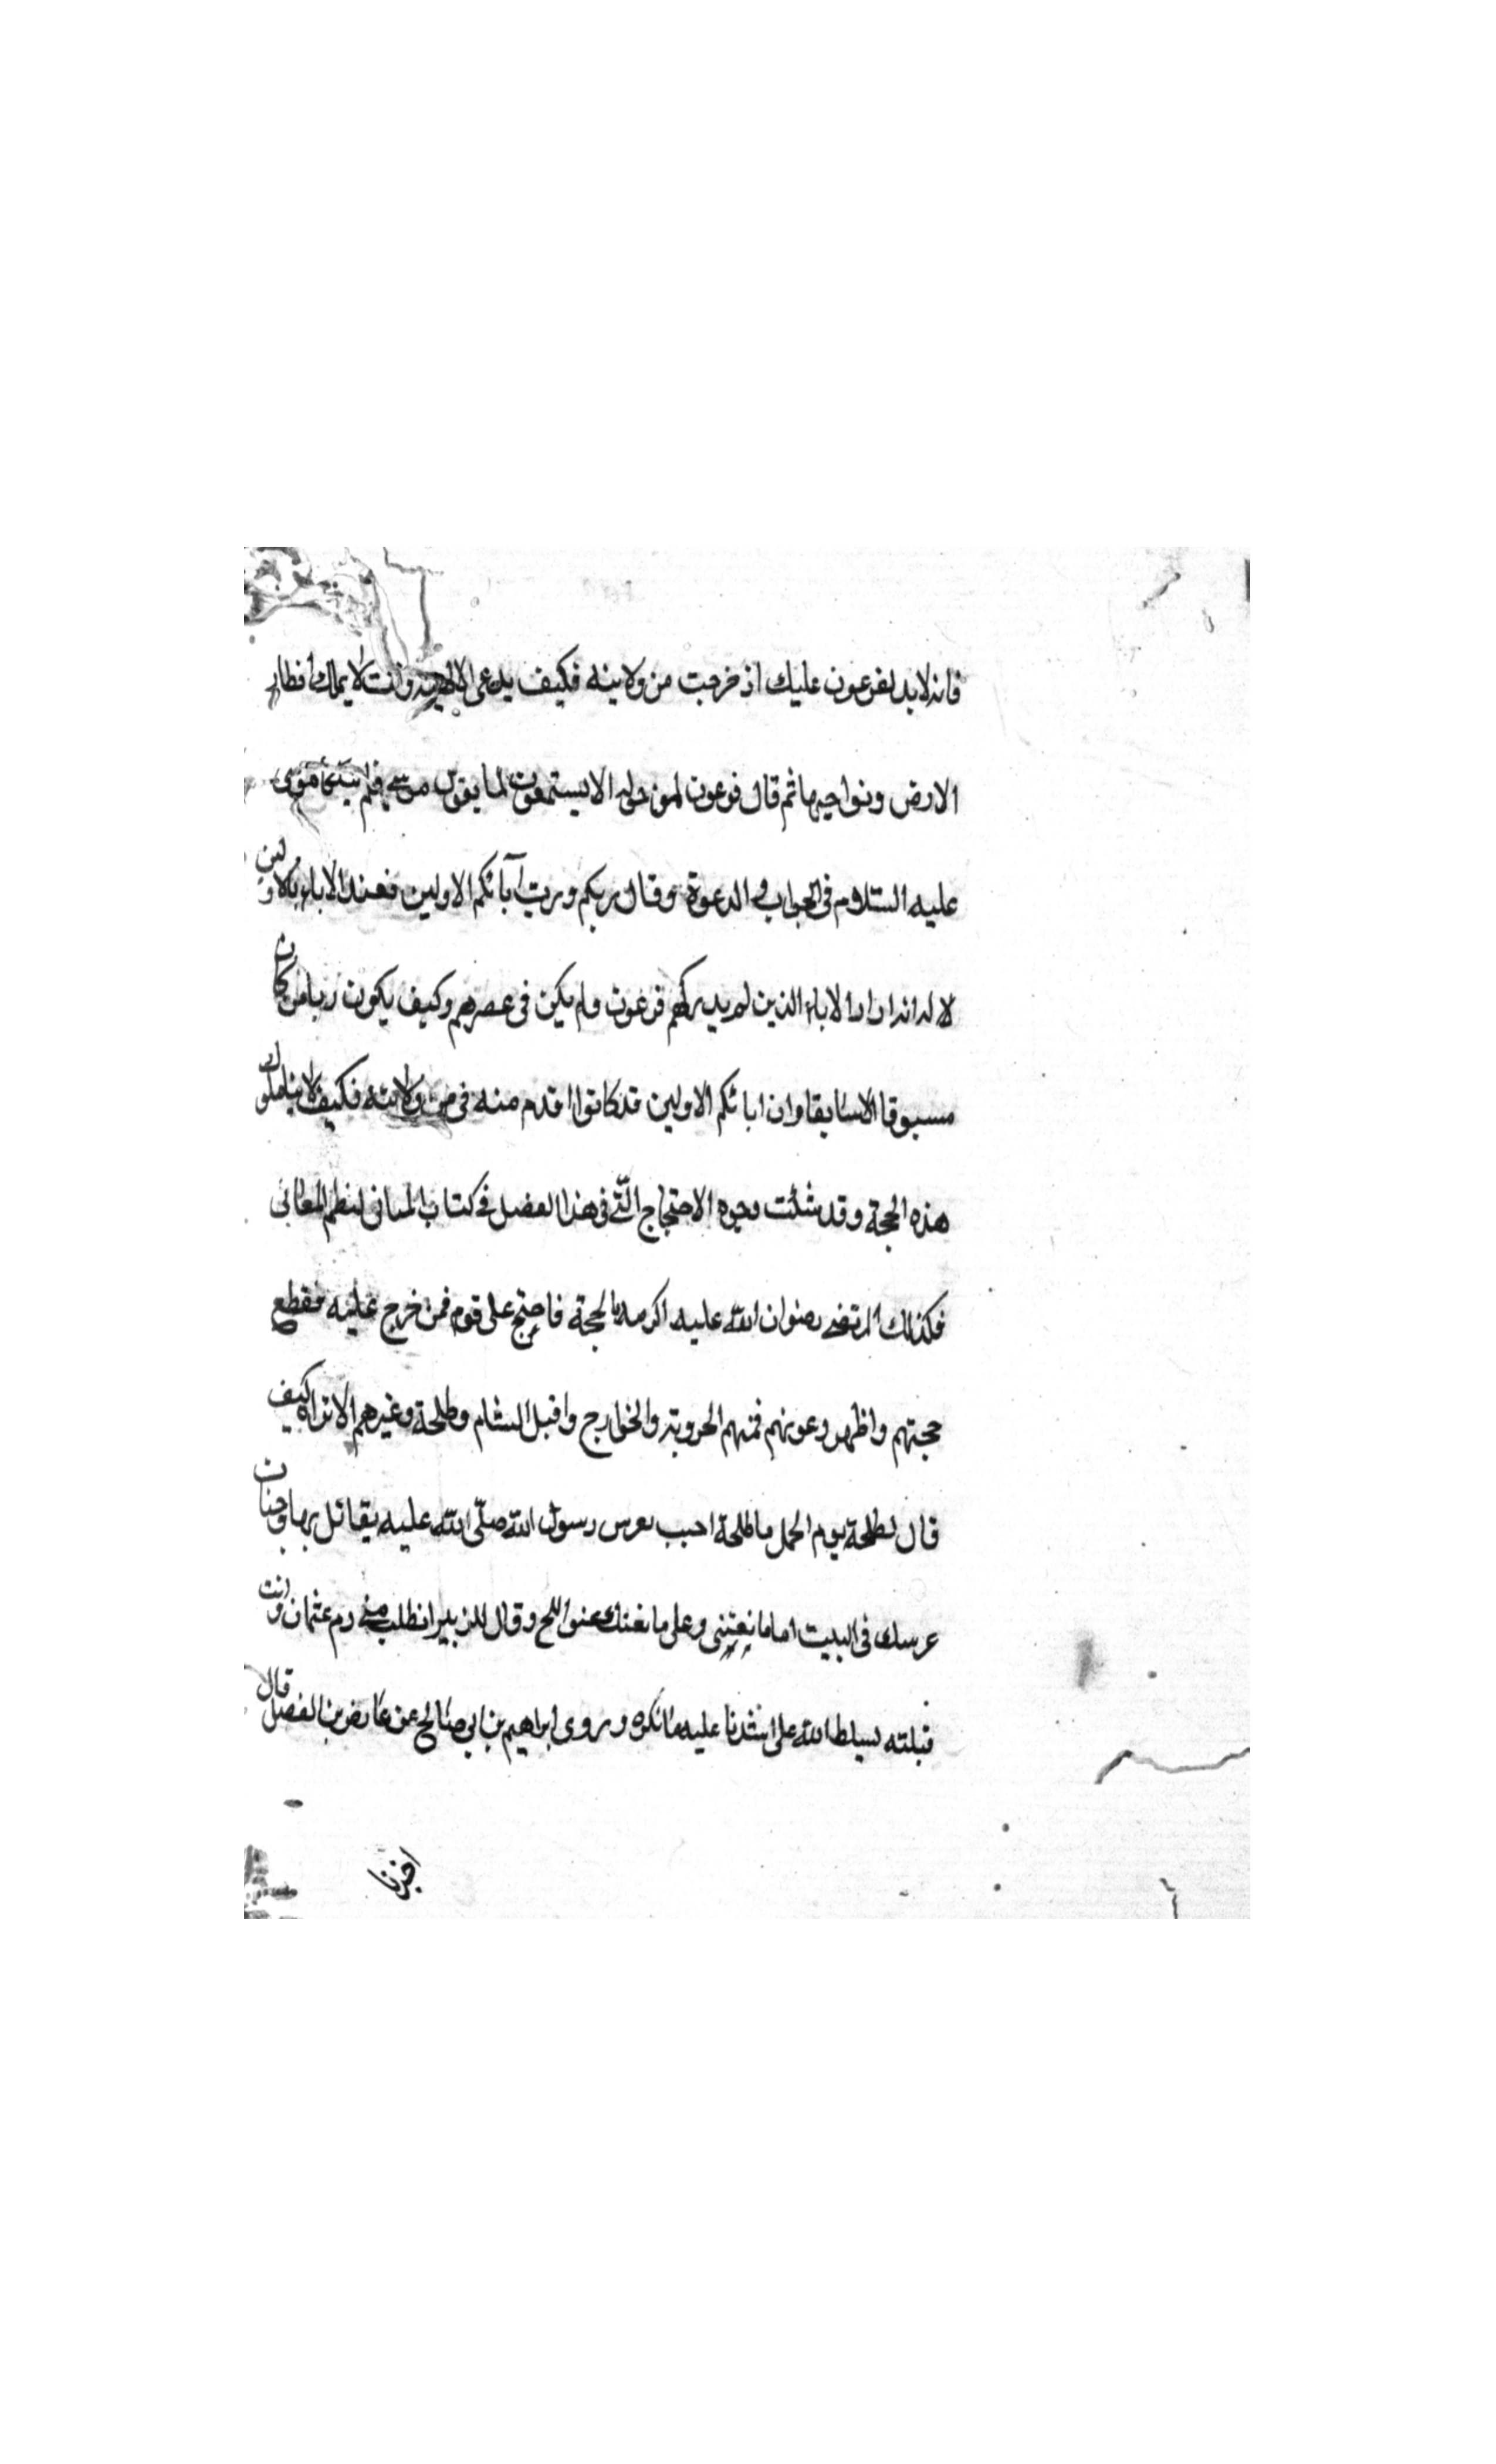 فانه لابد لفرعون عليك اذ خرجت من ولاينه فكيف يدعى وانت لا يملك افطار
الارض ونواحيها ثم قال فرعون لمن حوله الا يستمعون لما يقول موسى فلم موسى
عليه السلام فى الجواب و الدعوة وقال ربكم ورب آبائكم الاولين فعند الاباء بالاولين
لا له اندار الاباء الذين لم يدركهم فرعون ولم يكن فى عصرهم وكيف يكون ربا من كان
مسبوقا الا سابقا وان ابائكم الاولين قد كانوا اقدم منه فى ولايته فكيف لا
هذه الحجة وقد شئت وجوه الاحتجاج التى فى هذا الفصل فى كتاب المبانى لنظم المعانى
فكذلك المرتضى رضوان الله عليه اكرمه بالحجة فاحتج على قوم فمن خرج عليه فقطع
حجتهم واظهر دعوتهم فمنهم الحرورية والخوارج واقبل الشام وطلحة وغيرهم الا تراه كيف
قال لطلحة يوم الجمل ما طلحة احبب بعرس رسول الله صلى الله عليه يقاتل بها وخبات
عرسك فى البيت اما ما نعتنى وعلى ما نعنك وقال للزبير انطلب منى دم عثمان وانت
قبلته يسلط الله على اشدنا عليه ما نكره وروى ابراهيم بن ابى صالح عن بن الفضل قال
اخبرنا